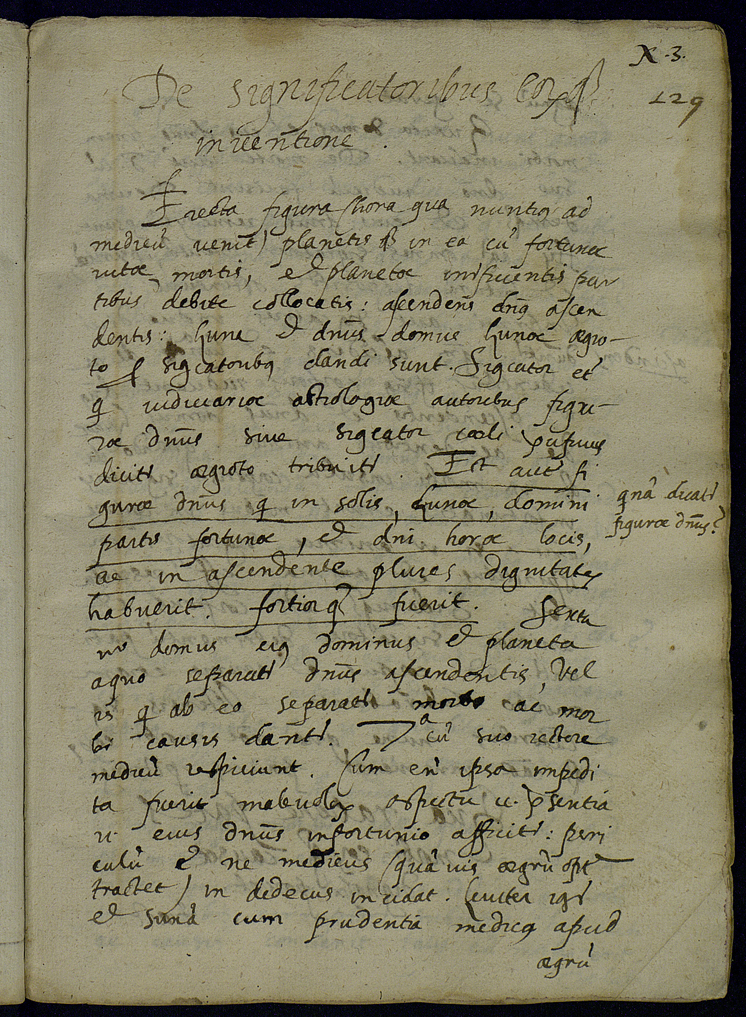 X.3.
129
De significatoribus eorq3
inventione.
Erecta figura (hora qua nuntiq ad
medicū venit) planetis q3 in ea cū fortunae
vitae, mortis, et planetae interficientis par-
tibus debite collocatis: ascendens dnq ascen
dentis: Luna et dnūs domus Lunae aegro-
to sigcatoribq dandi sunt. Sigcator et
q iudiciariae astrologiae autoribus figu-
rae dnūs sive sigcator coeli
dicit aegroto tribuit. Est aut fi
gurae dnūs q in solis, Lunae, domini
partis fortunae, et dni horae locis,
ac in ascendente plures dignitates
habuerit. fortiorq3 fuerit. Sexta
vo domus eiq dominus et planeta
aquo separat dnūs ascendentis, vel
is q ab eo separat morbo ac mor
bi causis dant. 7a cū suo rectore
medicū respiciunt. Cum en ipsa impedi
ta fuerit malevolq aspectu u. psentia
u. eius dnūs infortunio afficit: peri
culū e ne medicus (quāvis aegrū opt
tractet) in dedecus incidat. Leviter igr
et sumā cum prudentia medicq apud
aegrū
qnā dicat
figurae dnūs?